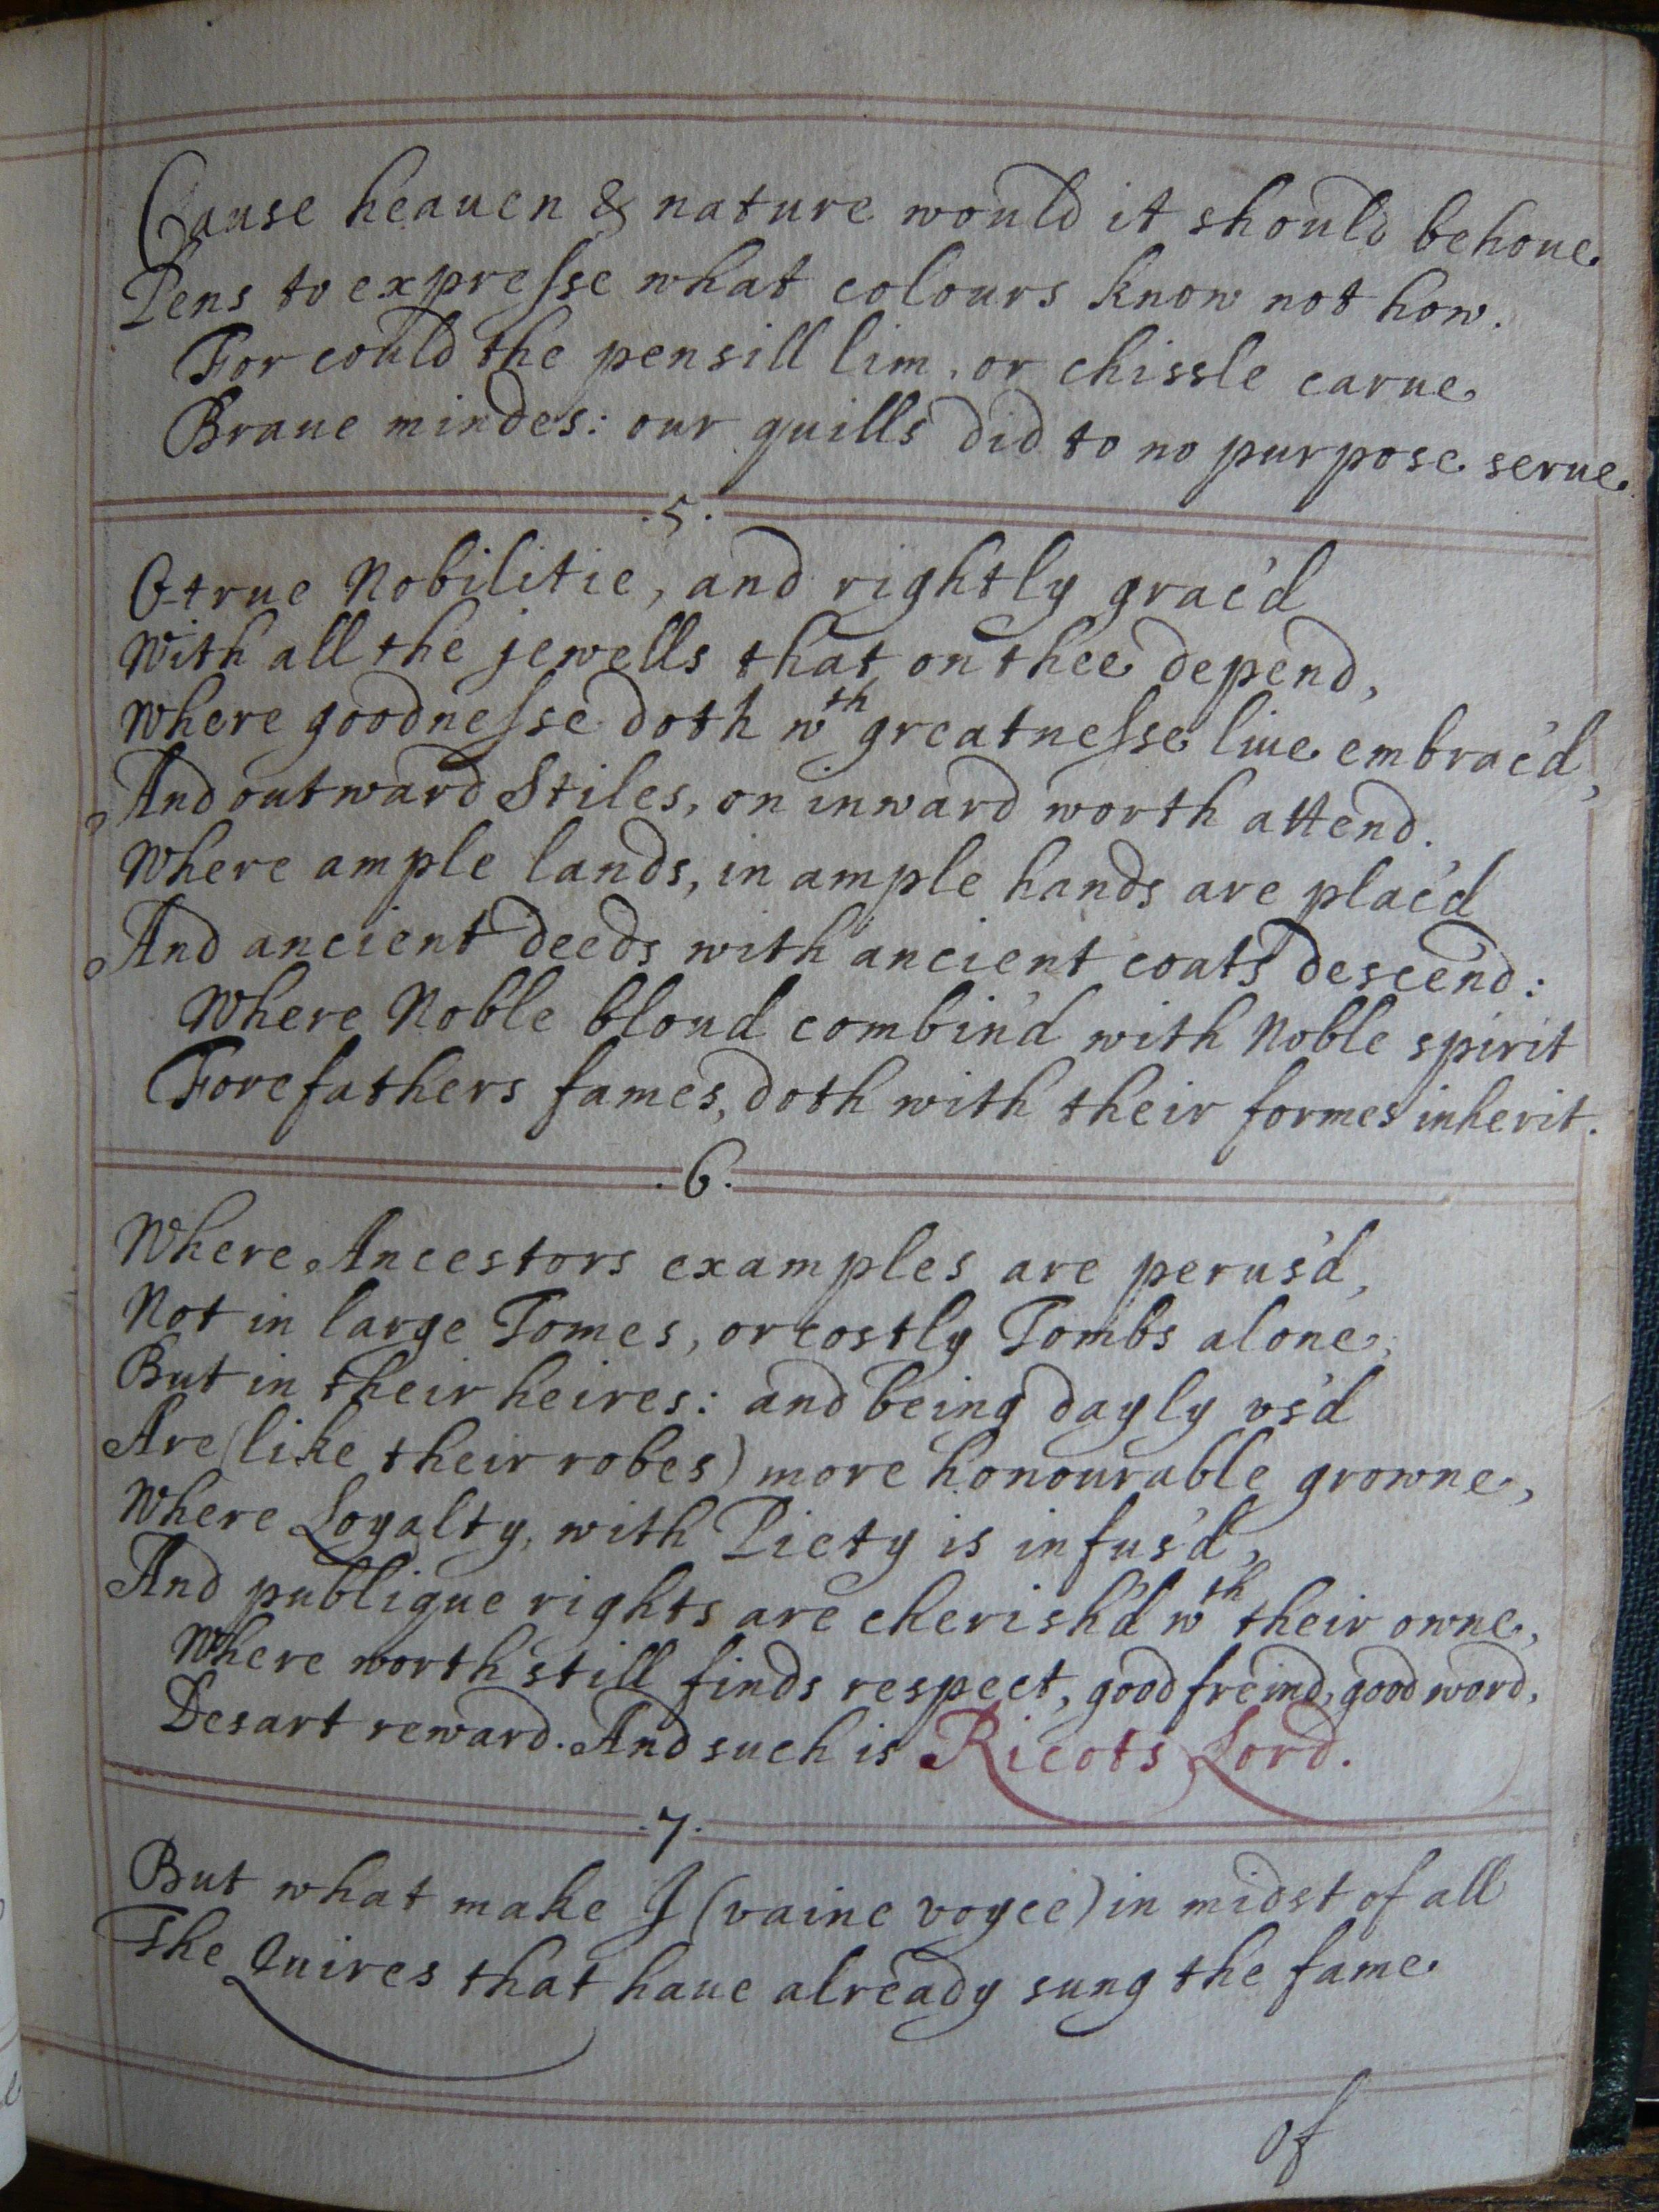 Cause heauen & nature would it should behoue
Pens to expresse what colours know not how.
For could the pensill lim, or chissle carue
Braue mindes: our quills did to no purpose serue.
.5.
O true Nobilitie, and rightly grac'd
With all the jewells that on thee depend,
Where goodnesse doth wth greatnesse liue embrac'd,
And outward Stiles, on inward worth attend.
Where ample lands, in ample hands are plac'd
And ancient deeds with ancient coats descend:
Where Noble bloud combin'd with Noble spirit
Forefathers fames, doth with their formes inherit.
.6.
Where Ancestors examples are perus'd,
Not in large Tomes, or costly Tombs alone,
But in their heires: and being dayly vs'd
Are (like their robes) more honourable growne,
Where Loyalty, with Piety is infus'd,
And publique rights are cherish'd wth their owne,
Where worth still finds respect, good freind, good word,
Desart reward. And such is Ricots Lord.
.7.
But what make I (vaine voyce) in midst of all
The Quires that haue already sung the fame
of